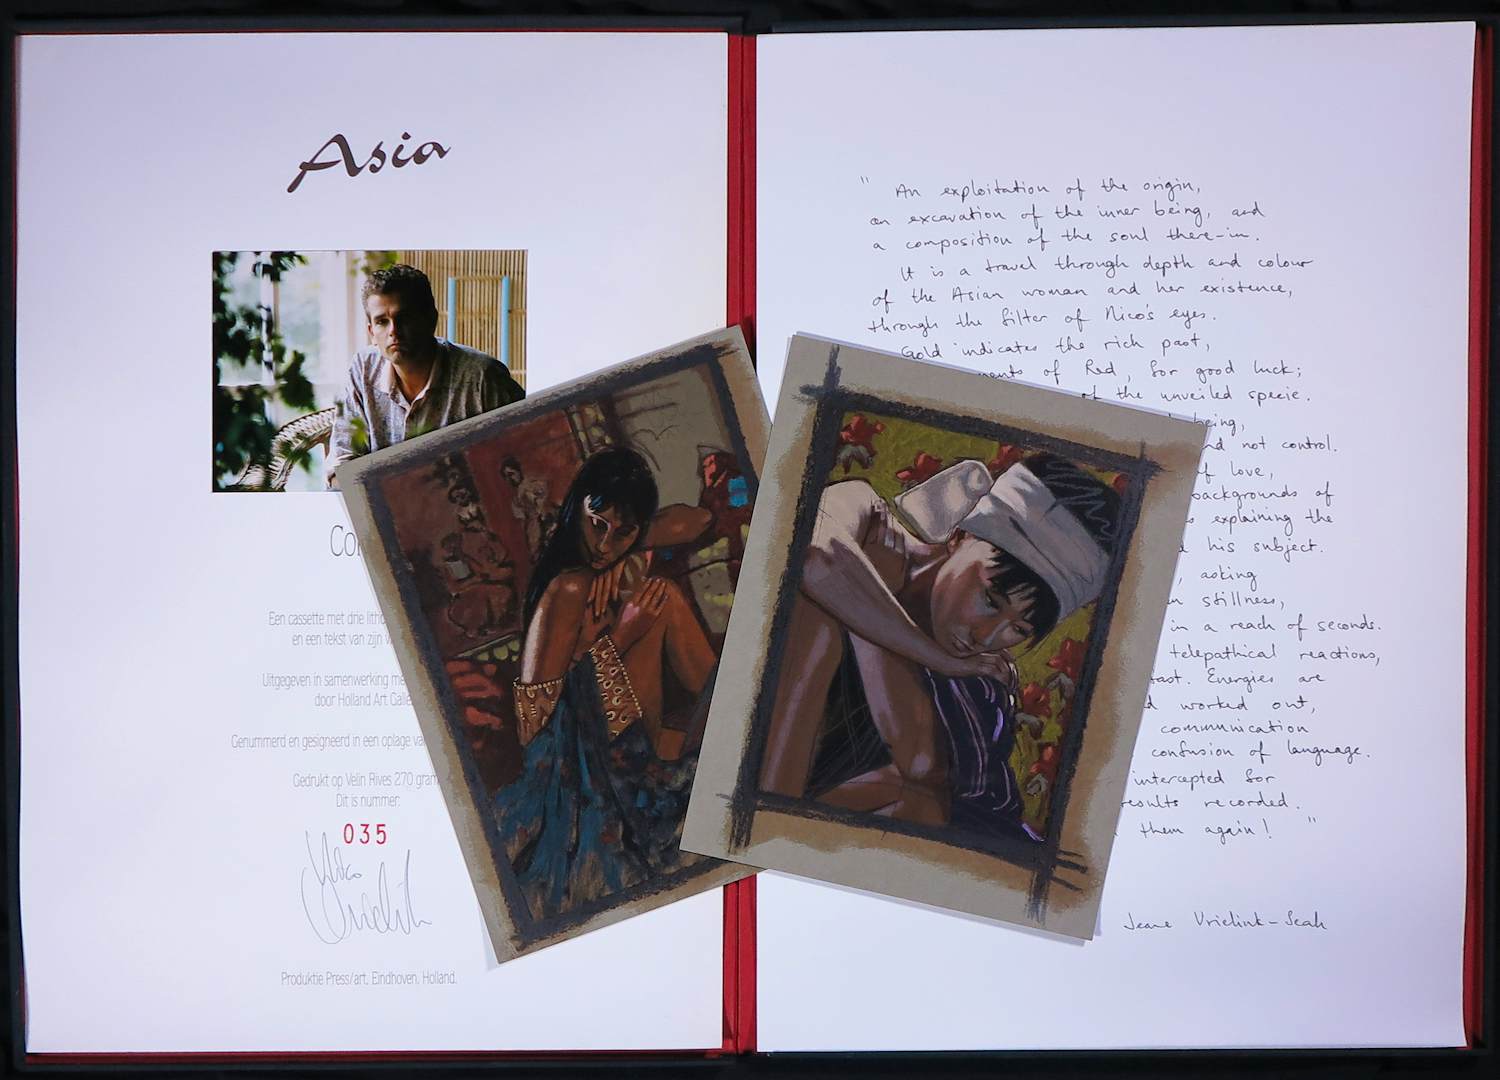 Asia
Een cassette met drie
en een tekst van zijn
Uitgegeven in samenwerking
door Holland Art
Genummerd en gesigneerd in een oplage
Gedrukt op Velin Rives 270 gram
Dit is nummer:
035
Produktie Press/art, Eindhoven, Holland.
" An exploitation of the origin,
an excavation of the inner being, and
a composition of the soul there-in.
It is a travel through depth and colour
of the Asian woman and her existence,
through the filter of Nico's eyes.
Gold indicates the rich past,
of Red, for good luck;
of the unveiled specie.
being,
not control.
of love,
backgrounds of
explaining the
his subject.
, asking
stillness,
in a reach of seconds.
telepathical reactions,
Energies are
worked out,
communication
confusion of language.
intercepted for
results recorded.
them again! "
Jeane Vrielink-Seah